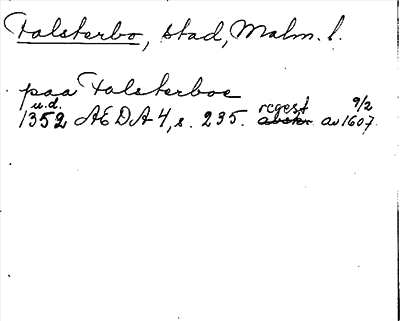 Falsterbo, stad, Malm. l.
paa Falsterboe
u.d. regest 9/2
1352 AEDA 4, s. 235. abskr. av 1607.